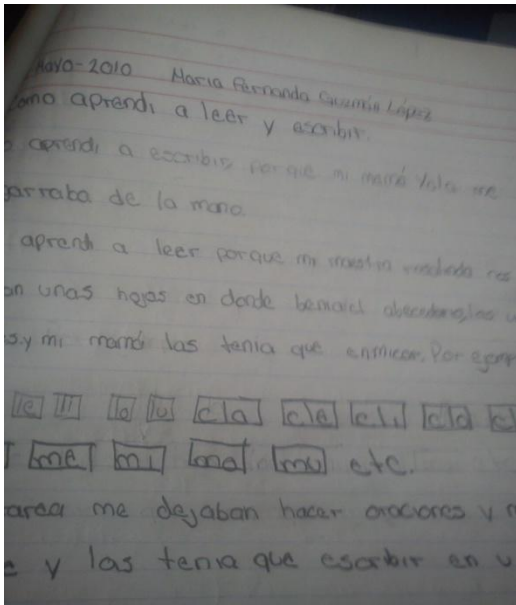 Mayo-2010 Maria Fernanda Guzmán López
como aprendi a leer y escribir.
aprendi a escribir porque mi mamá Yola me
garraba de la mano.
aprendi a leer porque mi maestra nos
an unas hojas en donde
s.y mi mamá las tenia que enmicar. Por ejemp
e i o u cla cle cli clo cl
me mi mo mu etc.
area me dejaban hacer oraciones y
e y las tenia que escribir en u